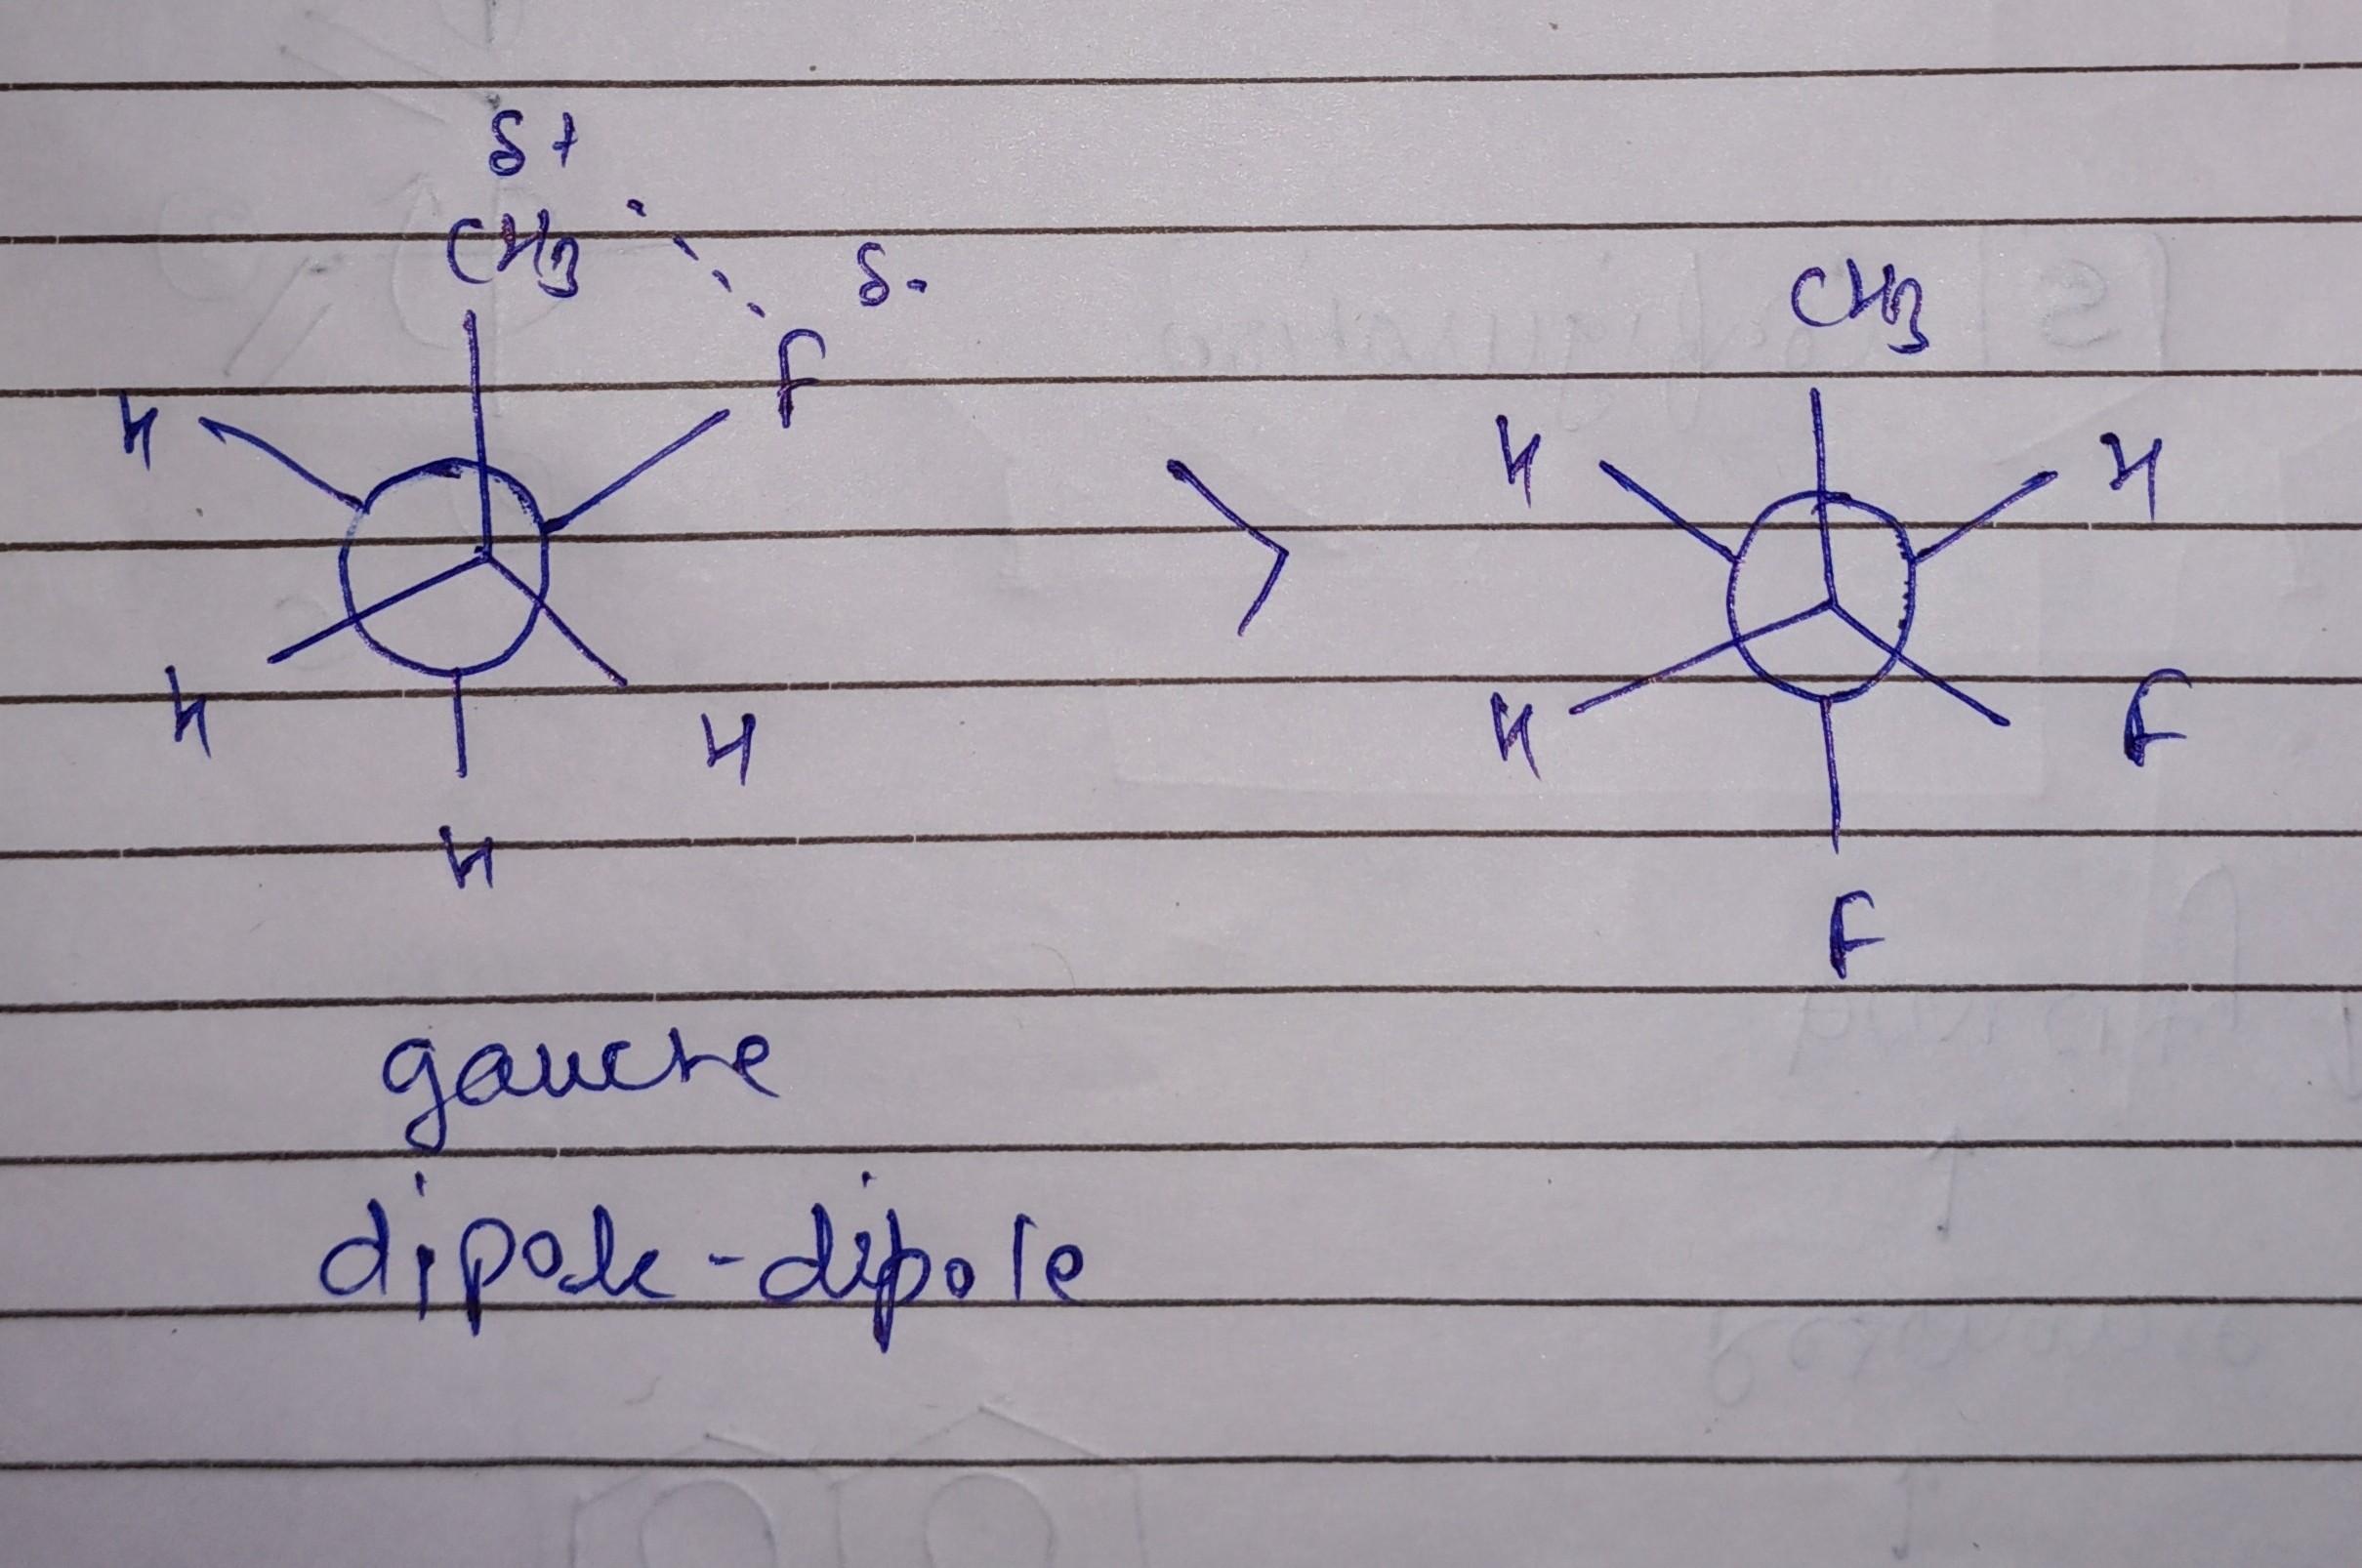 δ+
CH3 δ-
F CH3
H H H
H H H F
H F
gauche
dipole-dipole